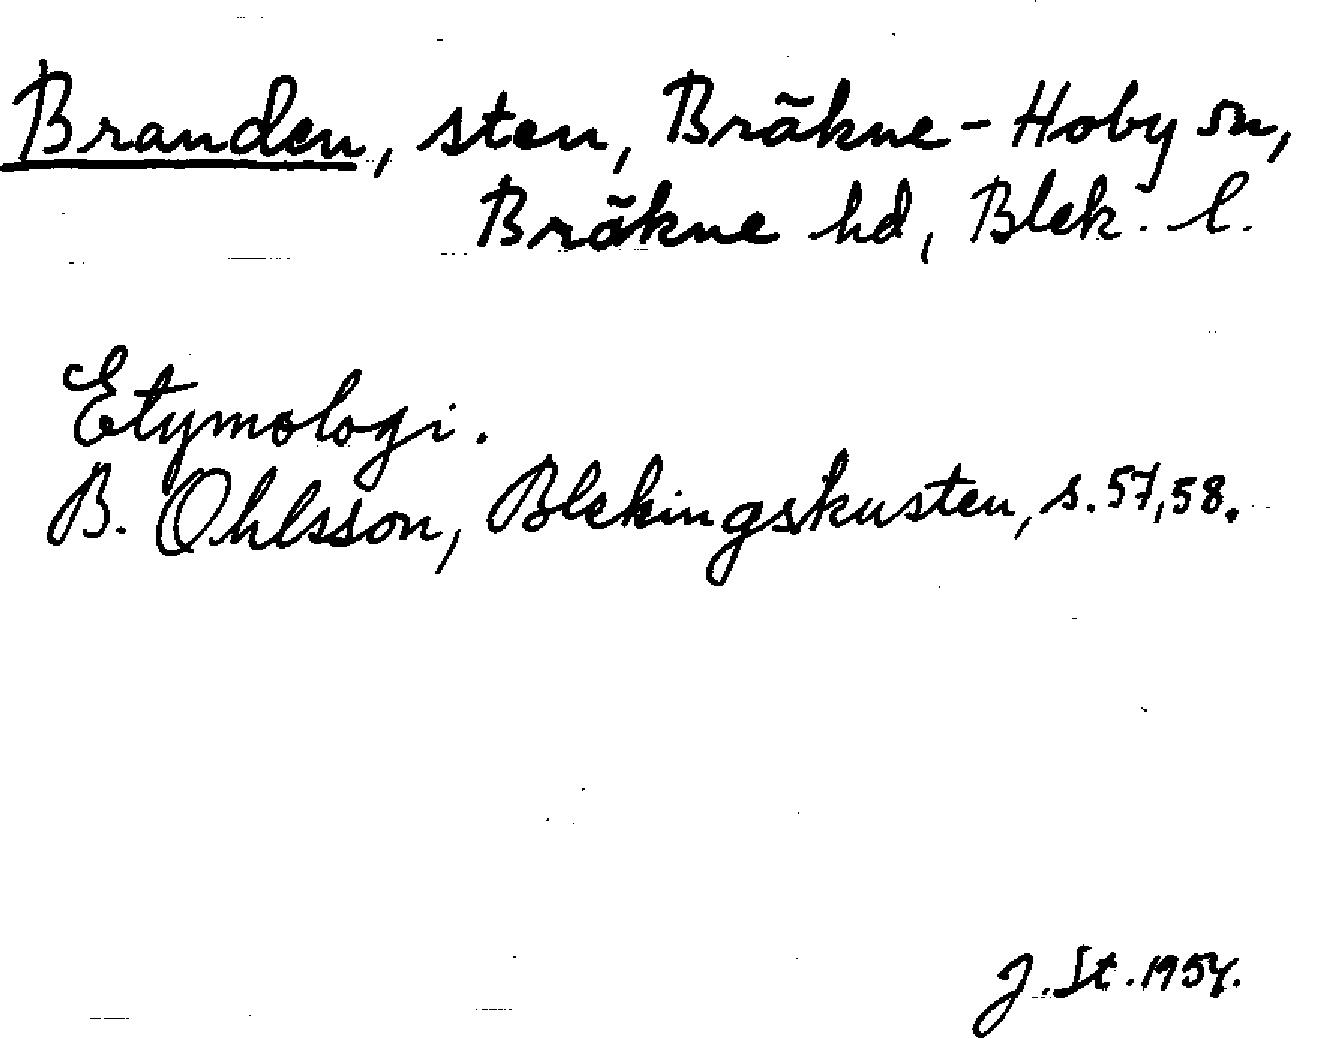 Branden, sten, Bräkne-Hoby sn,
Bräkne hd, Blek. l.
Etymologi.
B. Ohlsson, Blekingskusten, s. 57, 58.
J. St. 1954.